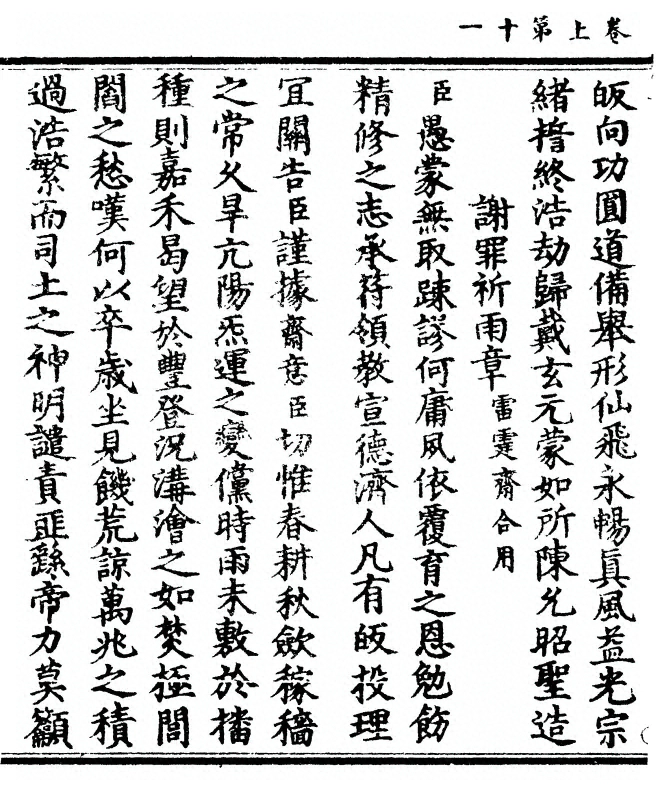 卷上第十一
皈向功圓道備舉形仙飛永暢真風益光宗
緒誓終浩劫歸戴玄元蒙如所陳允昭聖造
謝罪祈雨章雷霆齋合用
臣愚蒙無取踈謬何庸夙依覆育之恩勉飭
精修之志承符領教宣德濟人凡有皈投理
宜關告臣謹據齋意臣切惟春耕秋斂稼穡
之常久旱亢陽炁運之變儻時雨未敷於播
種則嘉禾曷望於豐登況溝澮之如焚極閭
閻之愁嘆何以卒歲坐見饑荒諒萬兆之積
過浩繁而司土之神明譴責匪繇帝力莫籲